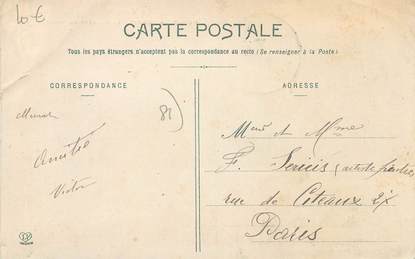 10€
CARTE POSTALE
Tous les pays étrangers n'acceptent pas la correspondance au recto (Se renseigner à la Poste)
CORRESPONDANCE
ADRESSE
81
Amitié
Victor
et Mme
F.
rue de Citeaux 27
Paris